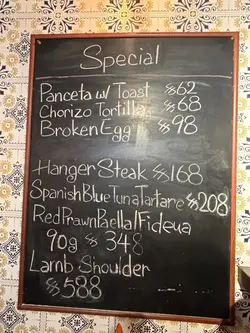 Special
Panceta w/ Toast $62
Chorizo Tortilla $68
Broken Egg $98
Hanger Steak $168
Spanish Blue Tuna Tartare $208
Red Prawn Paella/Fideua
90g $348
Lamb Shoulder
$588